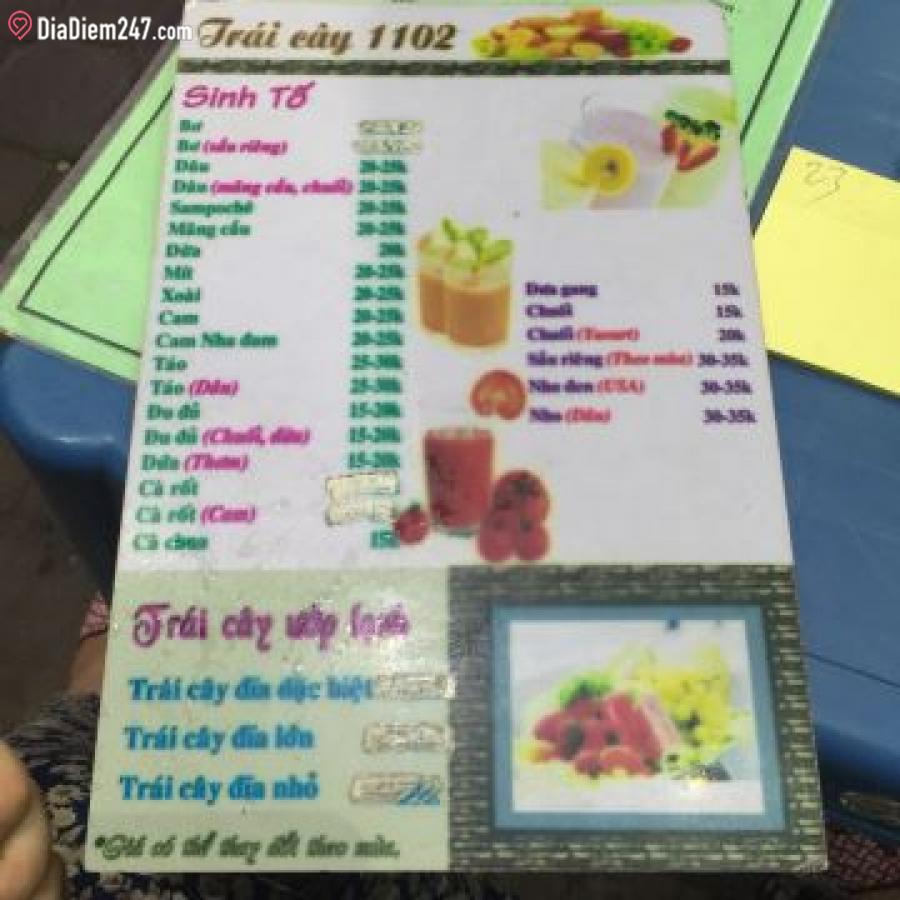 DiaDiem247.com
Trái cây 1102
Sinh Tố
Bơ
Bơ (sầu riêng)
Dâu 20-25k
Dâu (mãng cầu, chuối) 20-25k
Sampochê 20-25k
Mãng cầu 20-25k
Dừa 20k
Mít 20-25k
Xoài 20-25k
Cam 20-25k
Cam Nha đam 20-25k
Táo 25-30k
Táo (Dâu) 25-30k
Đu đủ 15-20k
Đu đủ (Chuối, dâu) 15-20k
Dứa (Thơm) 15-20k
Cà rốt
Cà rốt (Cam)
Cà chua 15k
Dưa gang 15k
Chuối 15k
Chuối (Yaourt) 20k
Sầu riêng (Theo mùa) 30-35k
Nho đen (USA) 30-35k
Nho (Dâu) 30-35k
23
Trái cây ướp lạnh
Trái cây đĩa đặc biệt
Trái cây đĩa lớn
Trái cây đĩa nhỏ
*Giá có thể thay đổi theo mùa.